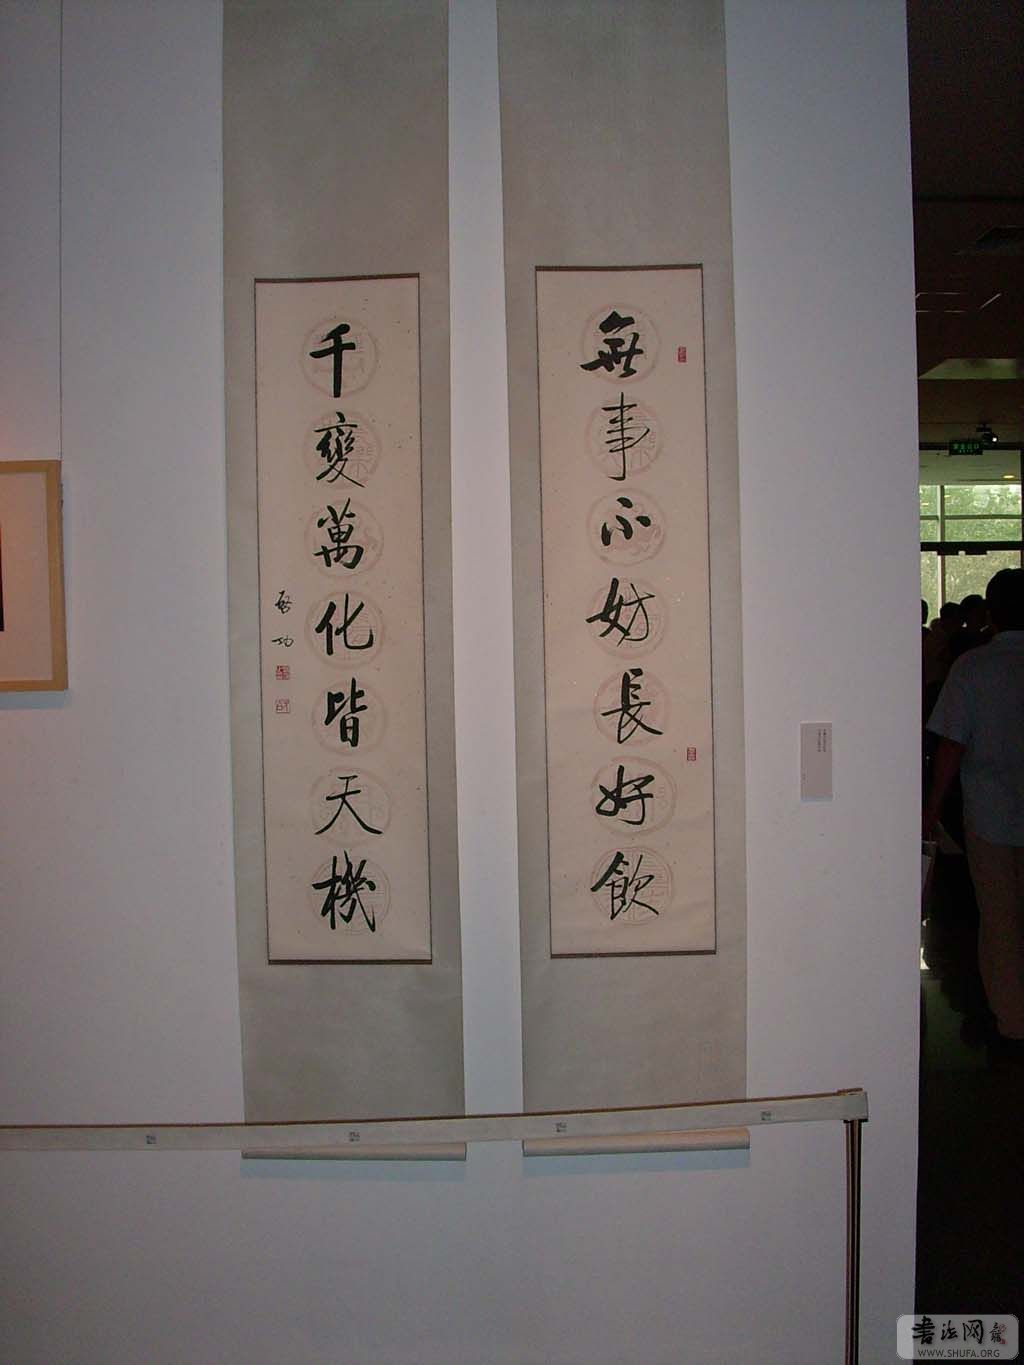 無事不妨長好飲
千變萬化皆天機
啓功
書法网
WWW.SHUFA.ORG